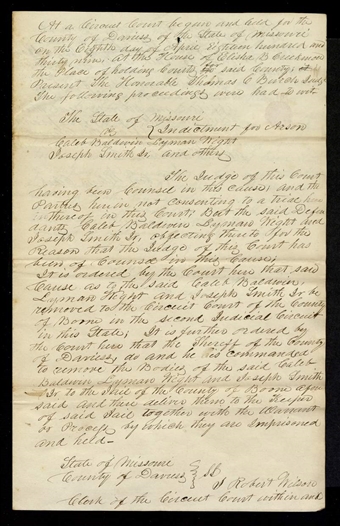 At a Circuit Court began and held for the
County of Daviess, of the State of Missouri
on the Eighth day of April Eighteen hundred and
thirty nine. At the House of Elisha B Creekmore
the Place of holding Courts for said County;
Present the Honorable Thomas C Burch Judge
The following proceedings were had to wit
The State of Missouri
vs } Indictment for Arson
Caleb Baldwin Lyman Wight
Joseph Smith Jr. and others
The Judge of this Court
having been Counsel in this cause, and the
Parties herein not consenting to a trial
thereof in this Court, But the said Defen
dants Caleb Baldwin Lyman Wight and
Joseph Smith Jr. objecting thereto for the
Reason that the Judge of this Court has
been of Counsel in this Cause,
It is ordered by the Court here that said
Cause as to the said Caleb Baldwin
Lyman Wight and Joseph Smith Jr be
removed to the Circuit Court of the County
of Boone in the Second Judicial Circuit
in this State, It is further ordered by
the Court here that the Sheriff of the County
of Daviess, do and he is commanded
to remove the Bodies of the said Caleb
Baldwin, Lyman Wight and Joseph Smith
Jr to the Jail of the County of Boone afore
said and there deliver them to the Keeper
of said Jail together with the Warrant
or Process by which they are Imprisoned
and held—
State of Missouri
County of Daviess } 
I Robert Wilson
Clerk of the Circuit Court within and